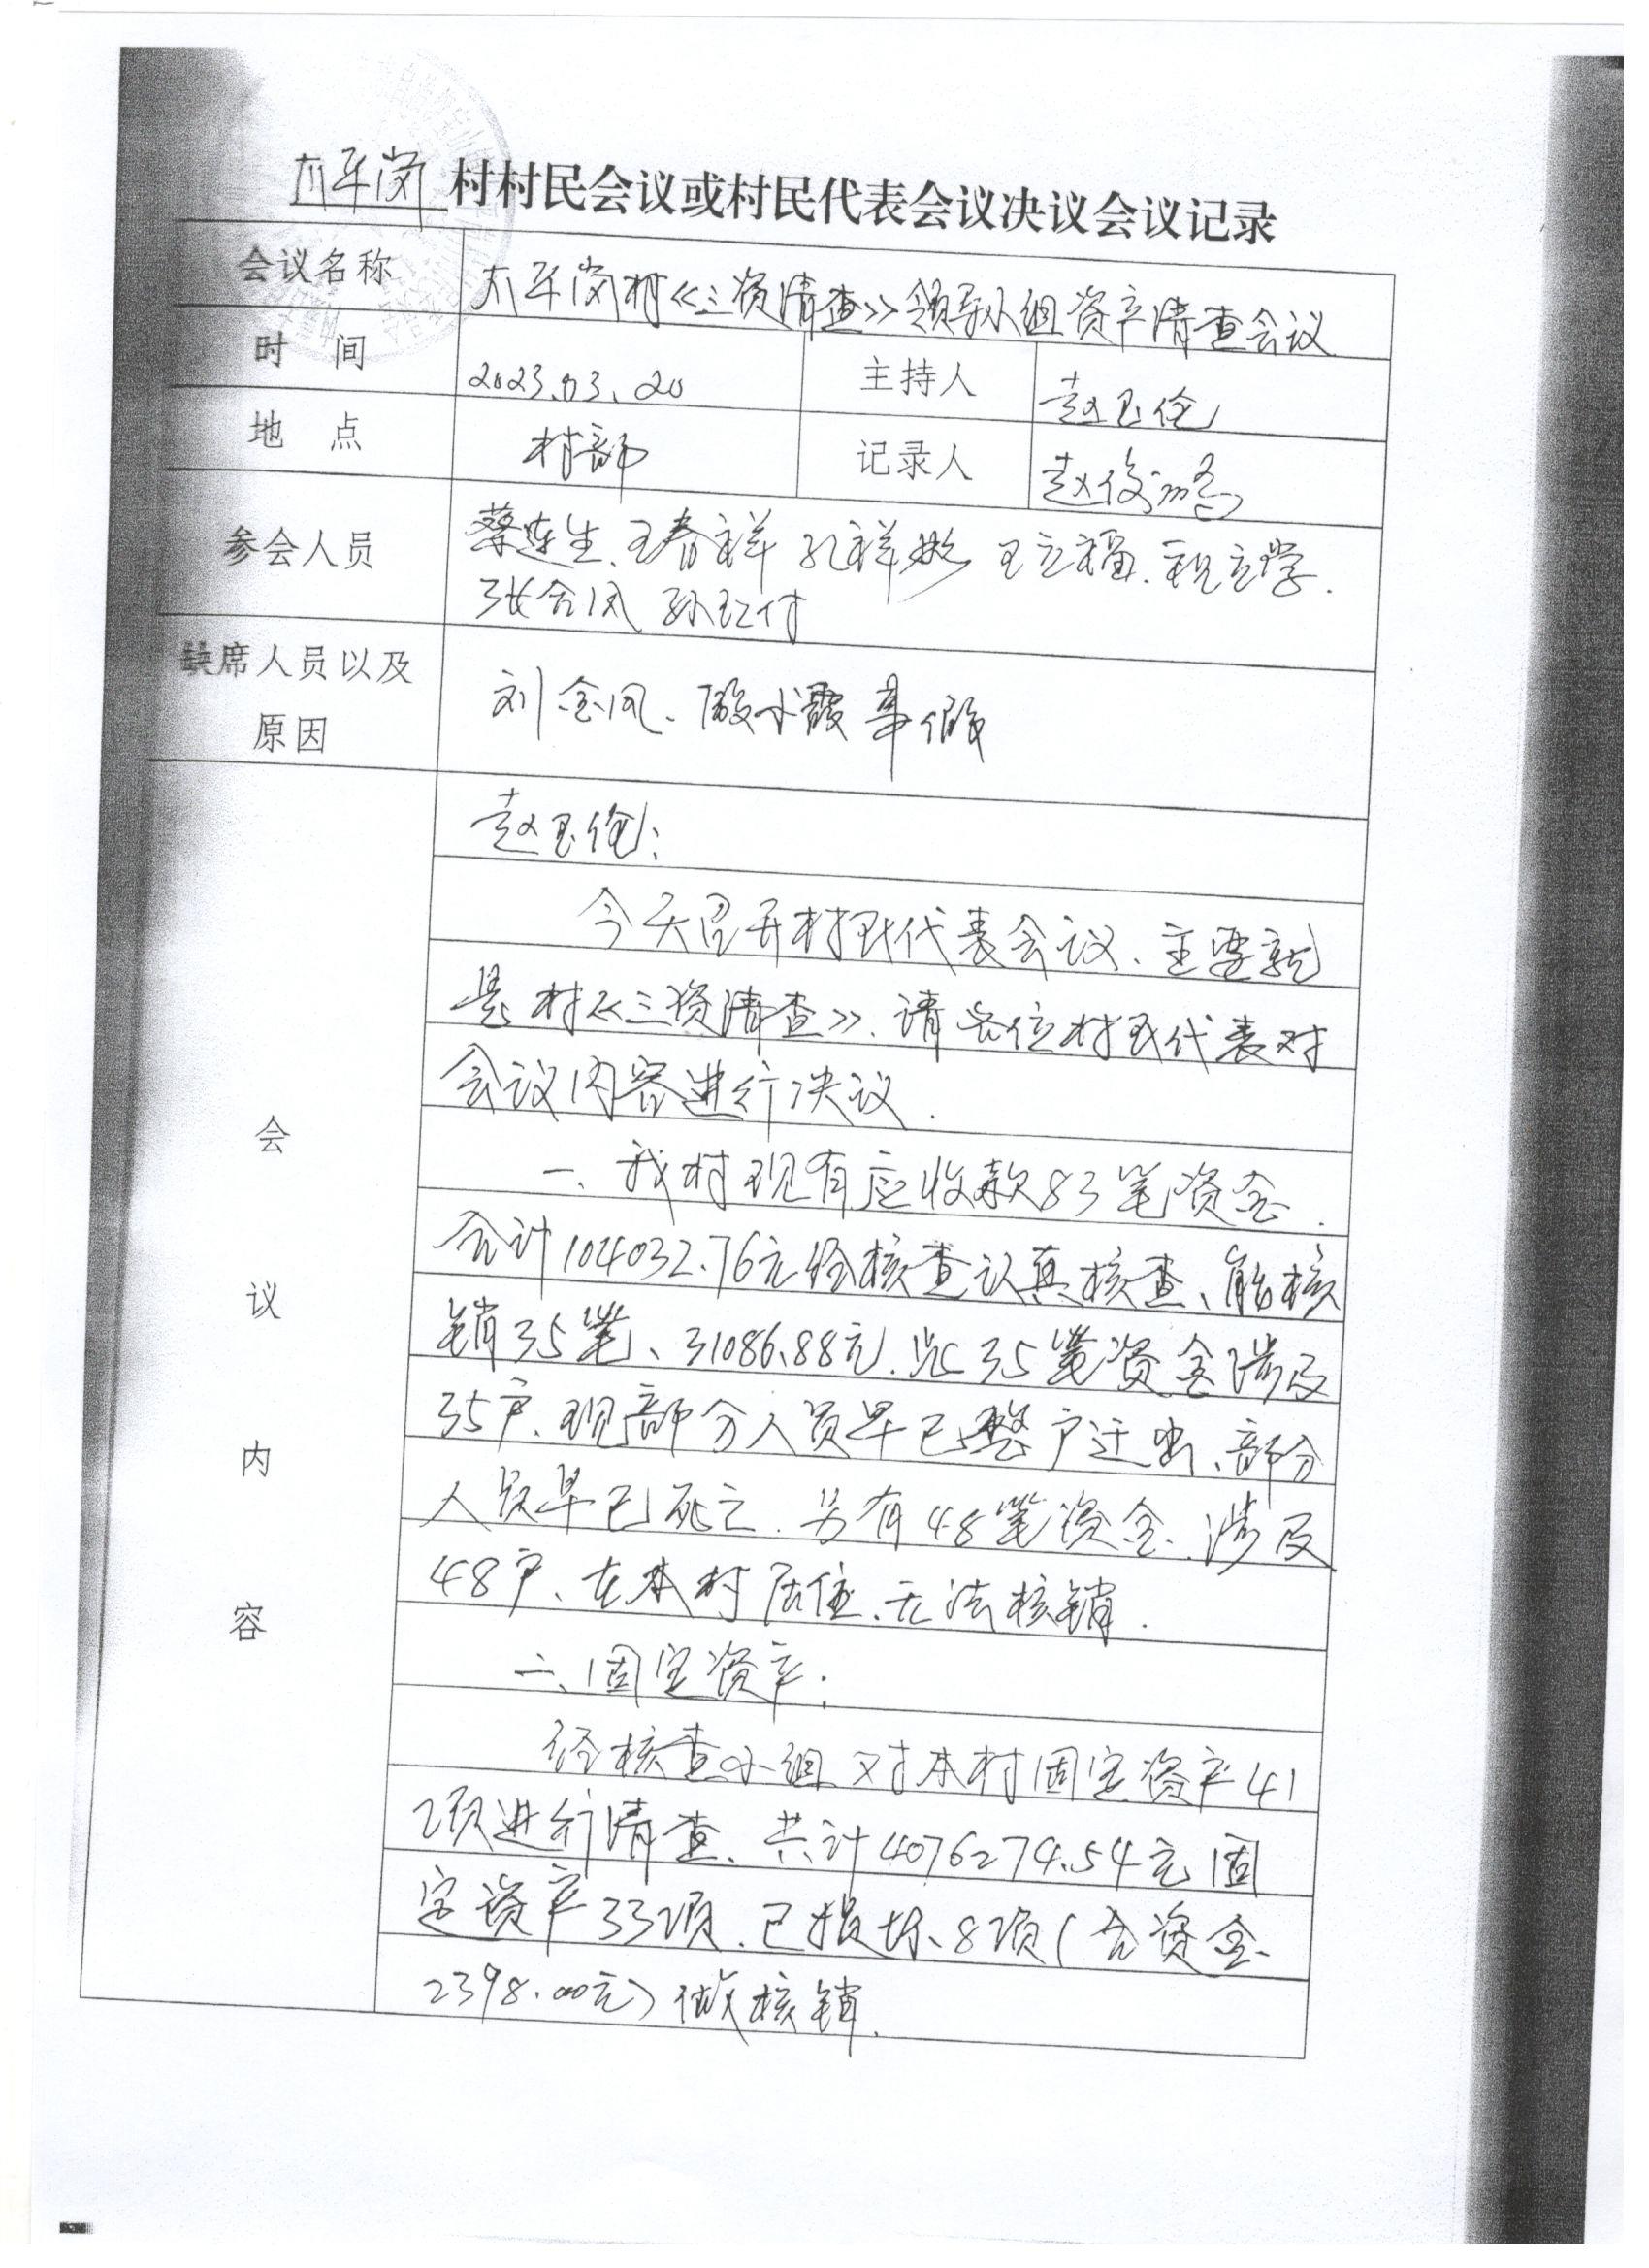 太平岗村村民会议或村民代表会议决议会议记录
会议名称 太平岗村《三资清查》领导小组资产清查会议
时 间 2023.03.20 主持人 赵玉伦
地 点 村部 记录人 赵俊
参会人员 蔡连生、王春祥 孔祥 王立福、祝立学、
张合凤 孙红付
缺席人员以及
原因
刘金凤、殷小霞事假
会议内容
赵玉伦:
今天召开村民代表会议、主要就
是村《三资清查》、请各位村民代表对
会议内容进行决议.
一、我村现有应收款83笔资金.
合计104032.76元经核查认真核查、能核
销35笔、31086.88元.此35笔资金涉及
35户、现部分人员早已整户迁出、部分
人员早已死亡.另有48笔资金.涉及
48户、在本村居住、无法核销.
二、固定资产:
经核查小组对本村固定资产41
项进行清查、共计4076274.54元固
定资产33项、已损坏、8项(含资金
2398.00元)做核销.